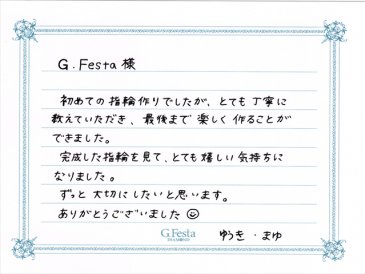 G.Festa 様
初めての指輪作りでしたが、とても丁寧に
教えていただき、最後まで楽しく作ることが
できました。
完成した指輪を見て、とても嬉しい気持ちに
なりました。
ずっと大切にしたいと思います。
ありがとうございました☺
G.Festa
DIAMOND
ゆうき・まゆ